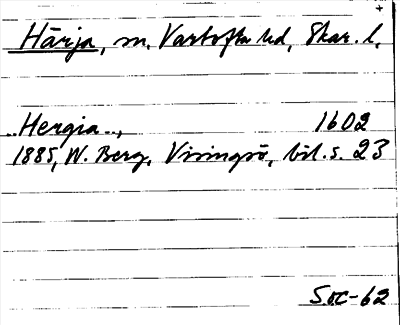 +
Härja, sn, Vartofta hd, Skar. l.
..Hergia.., 1602
1885, W. Berg, Visingsö, bil. s. 23
SOC-62